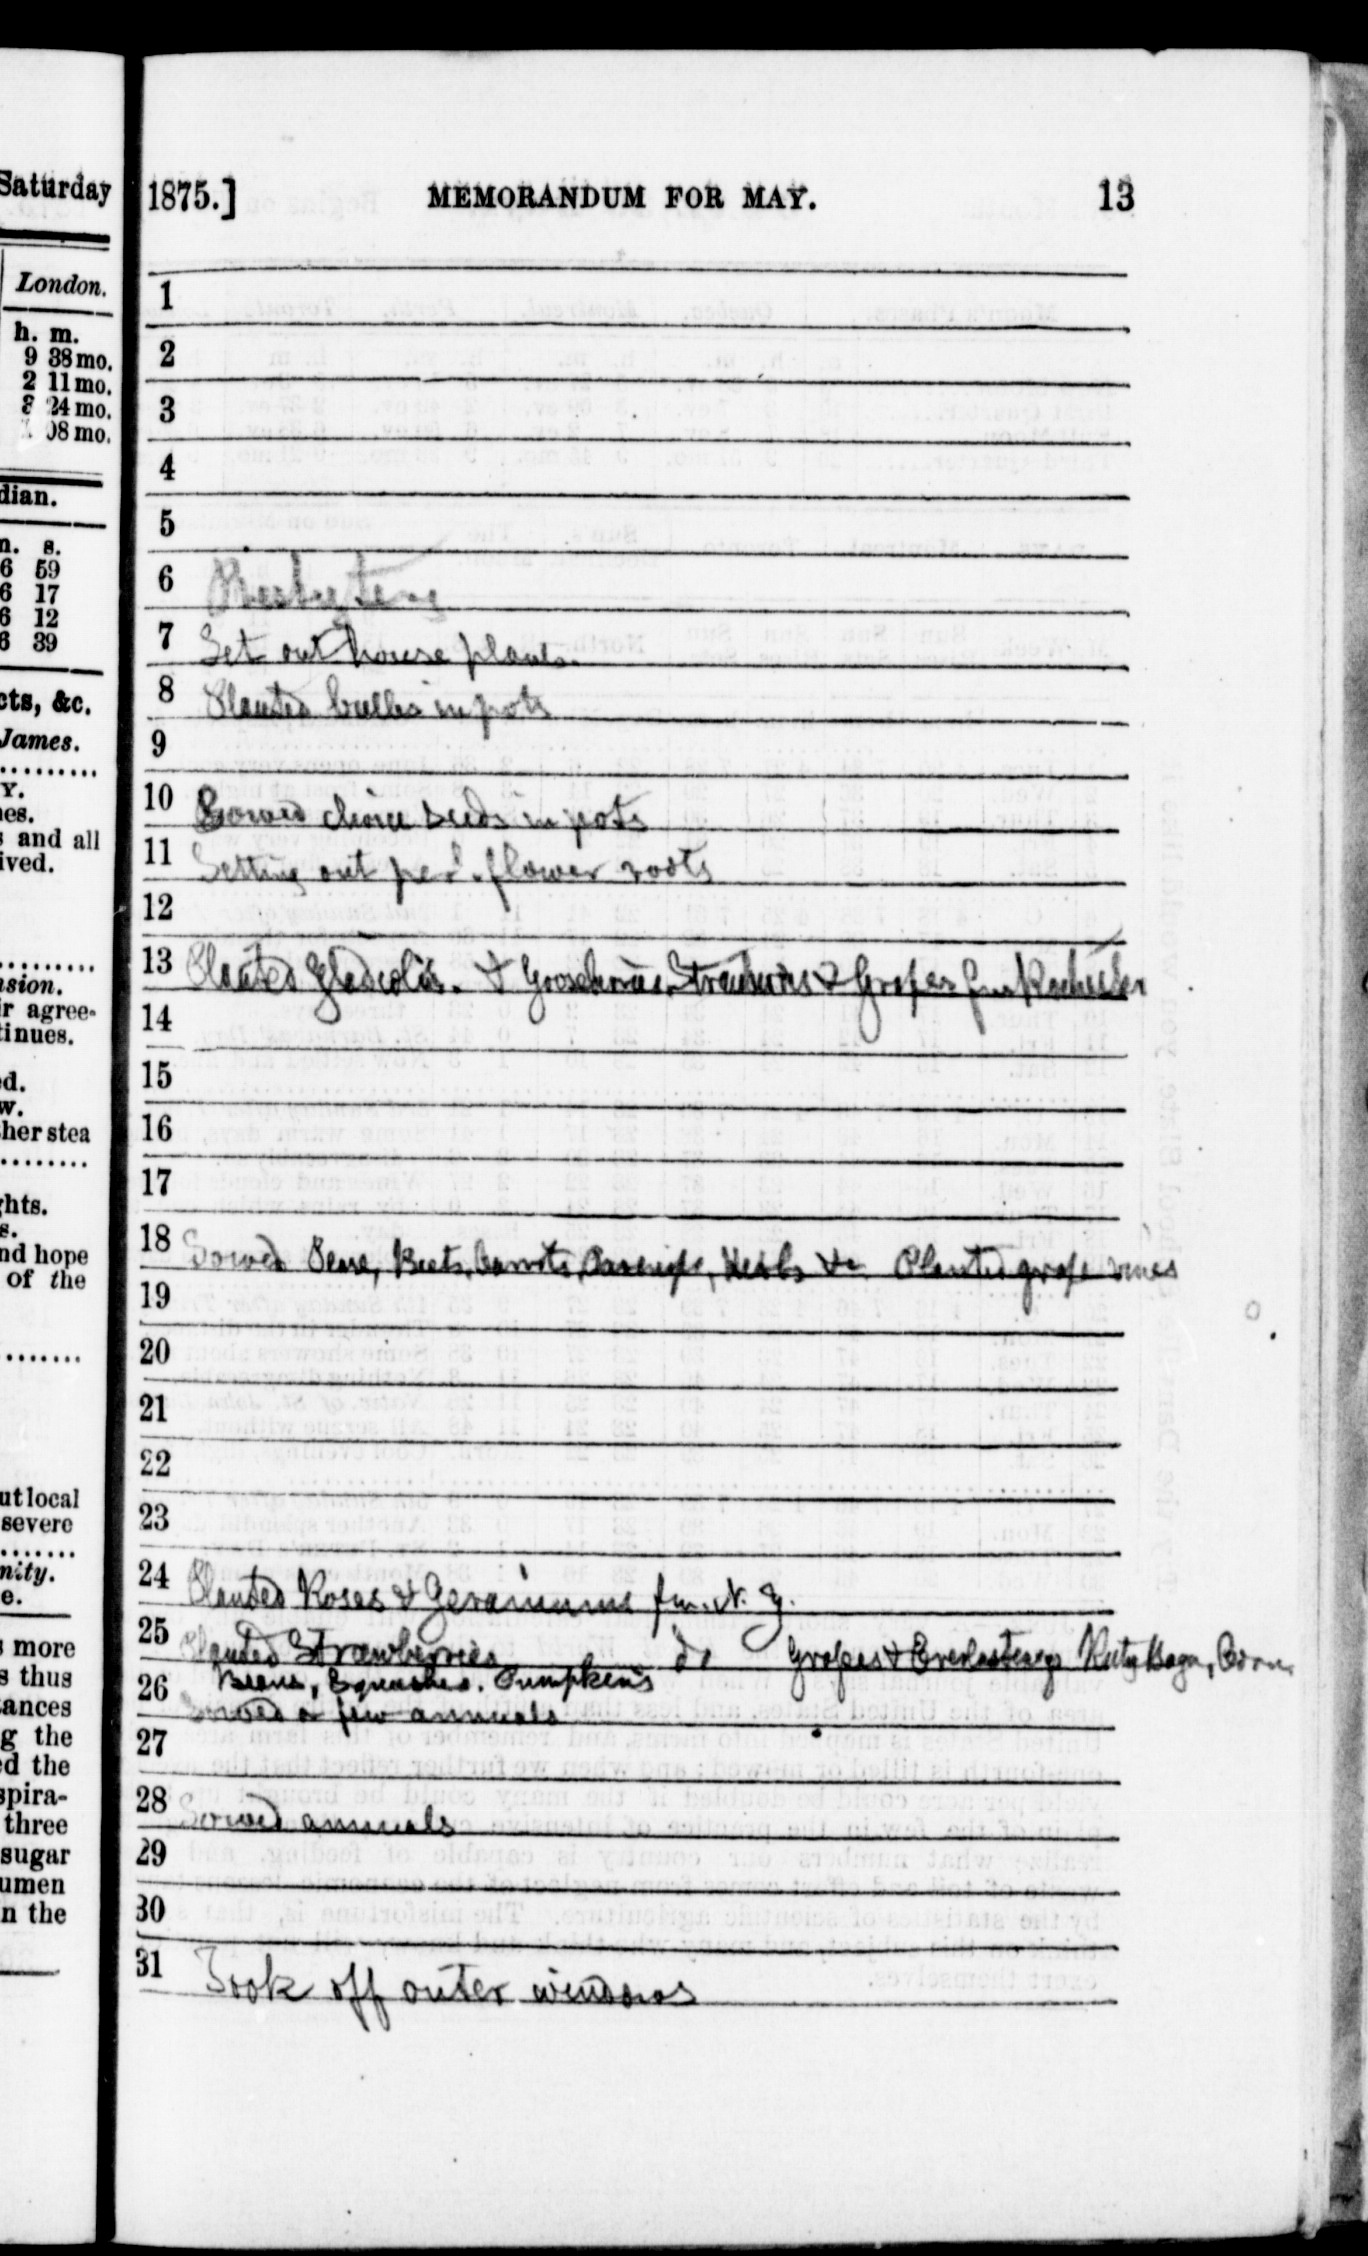 Saturday
London.
h. m.
9 38 mo.
2 11 mo.
24 mo.
08 mo.
dian.
s.
6 59
6 17
6 12
6 39
cts, &c.
James.
Y.
es.
s and all
ived.
sion.
ir agree-
tinues.
d.
w.
sher stea
ghts.
s.
nd hope
of the
ut local
severe
nity.
e.
s more
s thus
tances
g the
ed the
spira-
three
sugar
umen
n the
1875.] MEMORANDUM FOR MAY. 13
1
2
3
4
5
6 Presbytery
7 Set out house plants.
8 Planted bulbs in pots
9
10 Sowed choice seeds in pots
11 Setting out per'l. flower roots
12
13 Planted Gladiolis. & Gooseberries, Strawberries & Grapes fm Rochester
14
15
16
17
18 Sowed Pease, Beets, Carrots, Parsnips, Herbs &c Planted grape vines
19
20
21
22
23
24 Planted Roses & Geraniums fm. N. Y.
25 Planted Strawberries do Grapes & Everlastings Ruty Baga, Corn
Beans, Squashes, Pumpkins
26 Sowed a few annuals
27
28 Sowed annuals
29
30
31 Took off outer windows